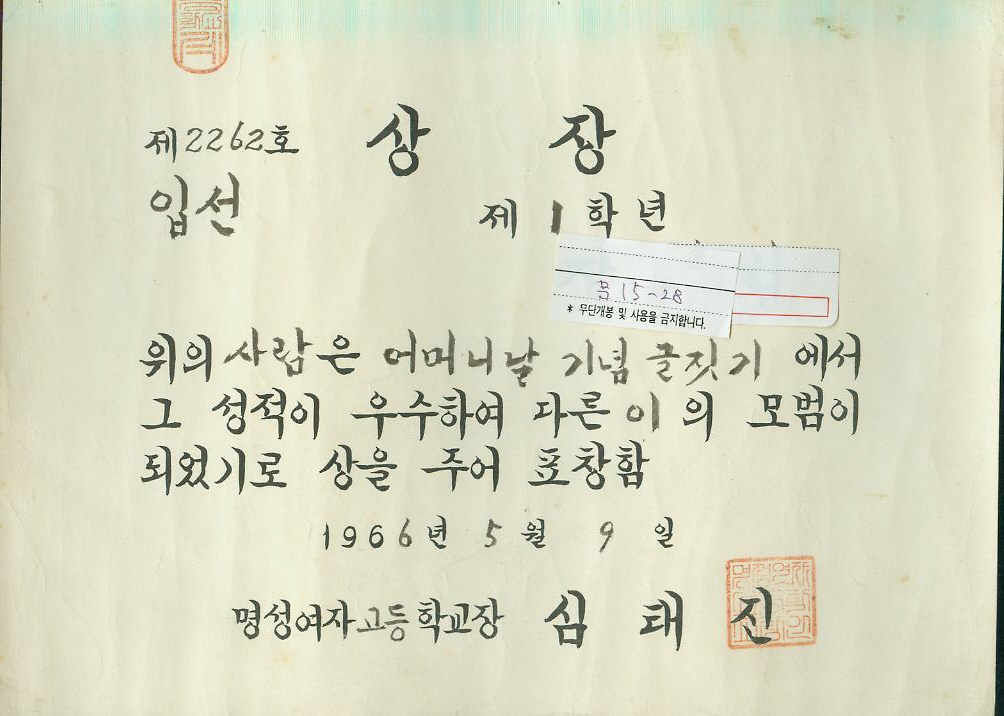 제2262호 상 장
입선 제 1 학년
몸 15-28
* 무단개봉 및 사용을 금지합니다.
위의 사람은 어머니날 기념 글짓기 에서
그 성적이 우수하여 다른 이의 모범이
되었기로 상을 주어 표창함
1966년 5월 9일
명성여자고등학교장 심 태 진